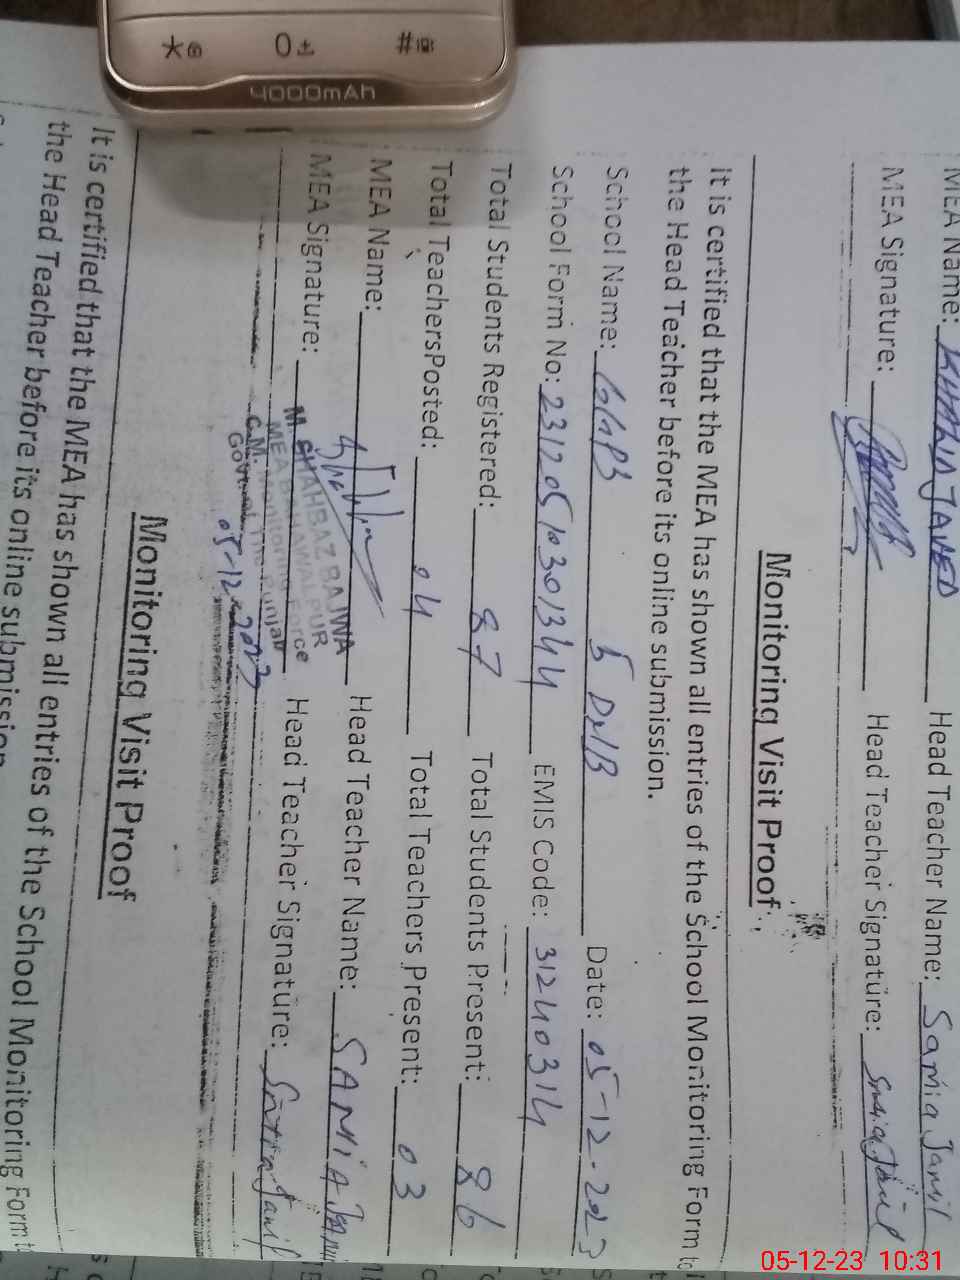 MEA Name: KHALID JAVED Head Teacher Name: Samia Jamil
MEA Signature: Head Teacher Signature: Samia Jamil
Monitoring Visit Proof
It is certified that the MEA has shown all entries of the School Monitoring Form to
the Head Teacher before its online submission.
School Name: GGPS 5 DNB Date: 05-12-2023
School Form No: 2312051030131344 EMIS Code: 31240314
Total Students Registered: 87 Total Students Present: 86
Total TeachersPosted: 04 Total Teachers Present: 03
MEA Name: Head Teacher Name: SAMIA Jamil
MEA Signature: Head Teacher Signature: Samia Jamil
M. SHAHBAZ BAJWA
MEA BAHAWALPUR
C.M. Monitoring Force
Govt. of The Punjab
05-12-2023
Monitoring Visit Proof
It is certified that the MEA has shown all entries of the School Monitoring Form
the Head Teacher before its online submission.
4000mAh
05-12-23 10:31